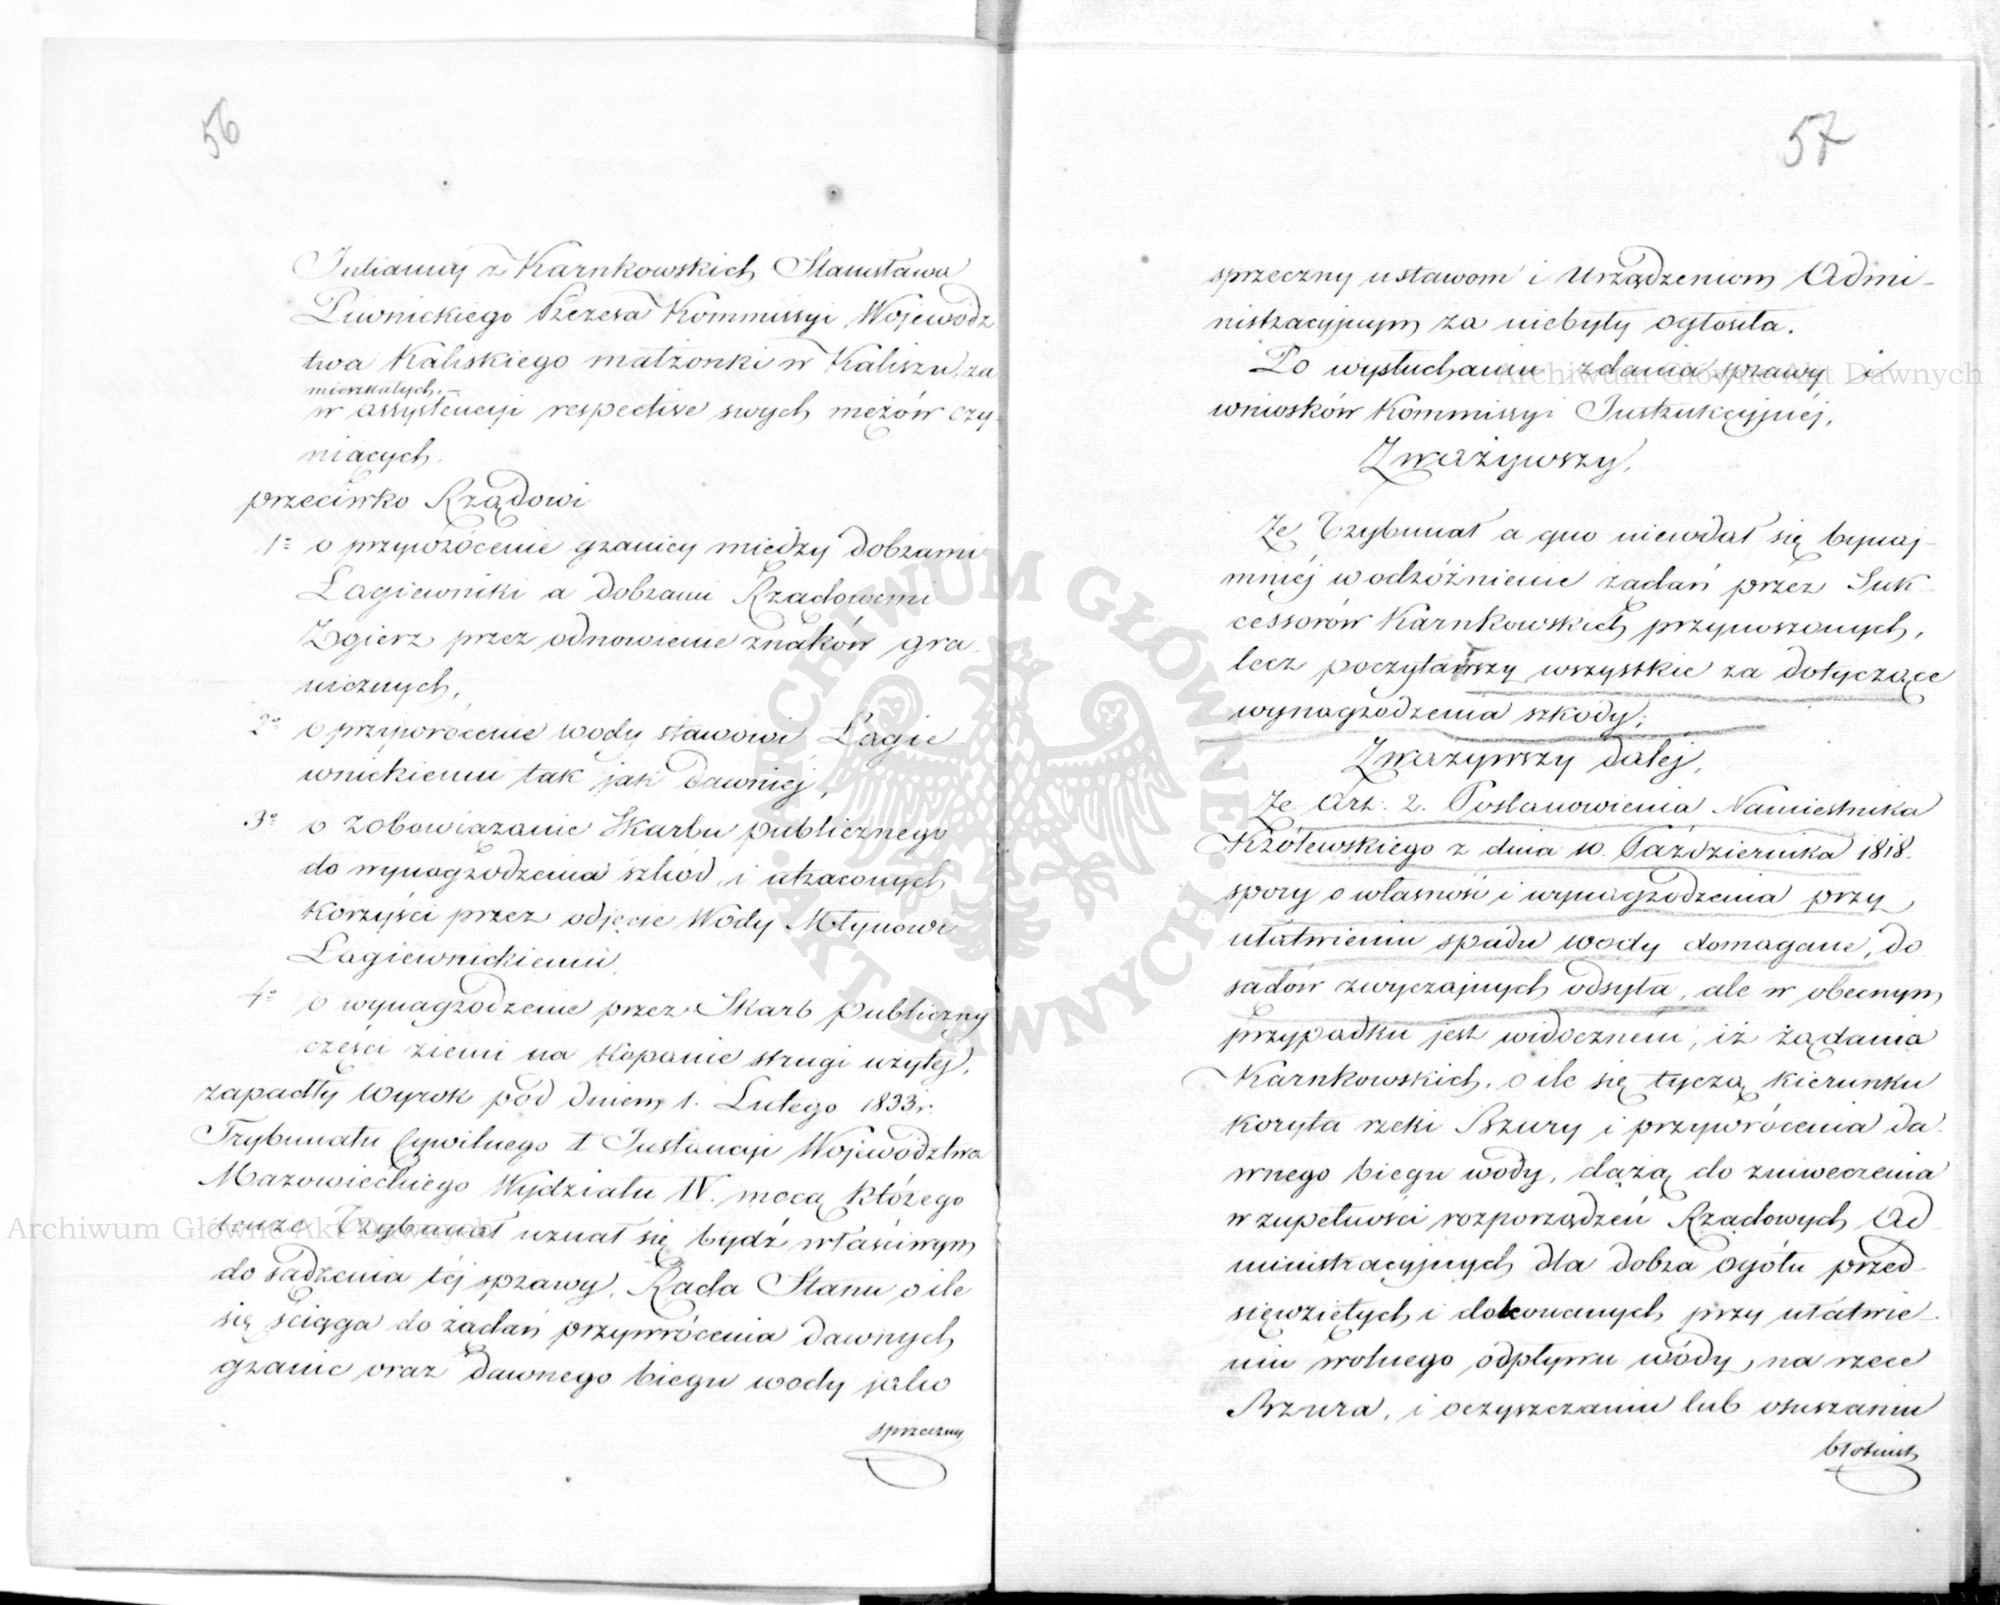 56
Julianny z Karnkowskich Stanisława
Piwnickiego Prezesa Kommissyi Wojewodz
twa Kaliskiego małżonki w Kaliszu za
mieszkałych. –
w assystencyi respective swych mężów czy
niących.
przeciwko Rządowi
1º o przywrócenie granicy między dobrami
Łagiewniki a dobrami Rządowemi
Zgierz przez odnowienie znaków gra
nicznych,
2º o przywrocenie wody stawowi Łagie
wnickiemu tak jak dawniej,
3º o zobowiązanie Skarbu publicznego
do wynagrodzenia szkod i utraconych
Korzyści przez odjęcie Wody Młynowi
Łagiewnickiemu,
4º o wynagrodzenie przez Skarb publiczny
części ziemi na kopanie strugi użytej,
zapadły Wyrok pod dniem 1. Lutego 1833 r.
Trybunału Cywilnego I Instancyi Województwa
Mazowieckiego Wydziału IV. mocą którego
tenże Trybunał uznał się bydź właściwym
do sądzenia téj sprawy, Rada Stanu o ile
się ściąga do żądań przywrócenia dawnych
granic oraz dawnego biegu wody jako
sprzeczny
57
sprzeczny ustawom i Urządzeniom Admi-
nistracyjnym za niebyły ogłosiła.
Po wysłuchaniu zdania sprawy i
wniosków Kommissyi Instrukcyjnéj,
Zważywszy,
Że Trybunał a quo niewdał się bynaj-
mniéj w odróżnienie żądań przez Suk-
cessorów Karnkowskich przynoszonych,
lecz poczytawszy wszystkie za dotyczące
wynagrodzenia szkody;
Zważywszy daléj,
Że Art: 2. Postanowienia Namiestnika
Królewskiego z dnia 10. Października 1818.
spory o własność i wynagrodzenia przy
ułatwieniu spadu wody domagane, do
sądów zwyczajnych odsyła, ale w obecnym
przypadku jest widocznem, iż żądania
Karnkowskich, o ile się tyczą kierunku
koryta rzeki Bzury i przywrócenia da-
wnego biegu wody, dążą do zniweczenia
w zupełności rozporządzeń Rządowych Ad-
ministracyjnych dla dobra ogółu przed-
sięwziętych i dokonanych przy ułatwie-
niu wolnego odpływu wody, na rzece
Bzura, i oczyszczaniu lub osuszaniu
błotnist
Archiwum Główne Akt Dawnych
Archiwum Główne Akt Dawnych
ARCHIWUM GŁÓWNE
AKT DAWNYCH